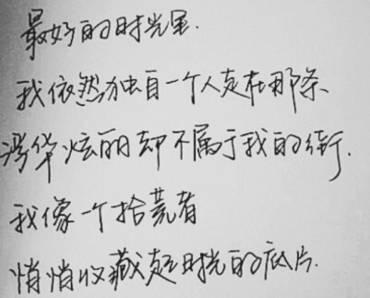 最好的时光里.
我依然独自一个人走在那条
浮华炫丽却不属于我的街.
我像一个拾荒者
悄悄收藏起时光的底片.